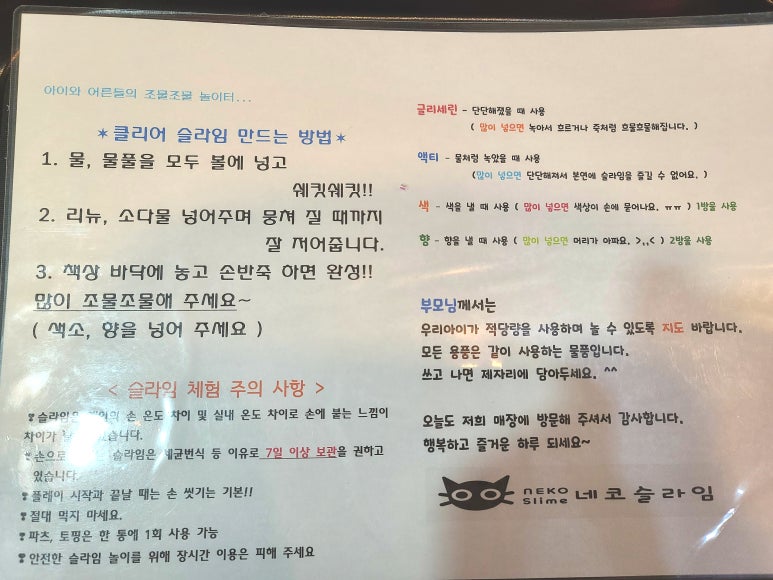 아이와 어른들의 조물조물 놀이터...
✶클리어 슬라임 만드는 방법✶
1. 물, 물풀을 모두 볼에 넣고
쉐킷쉐킷!!
2. 리뉴, 소다물 넣어주며 뭉쳐 질 때까지
잘 저어줍니다.
3. 책상 바닥에 놓고 손반죽 하면 완성!!
많이 조물조물해 주세요~
( 색소, 향을 넣어 주세요 )
< 슬라임 체험 주의 사항 >
❣슬라임은 손 온도 차이 및 실내 온도 차이로 손에 붙는 느낌이
차이가 있습니다.
❣손으로 슬라임은 세균번식 등 이유로 7일 이상 보관을 권하고
있습니다.
❣플레이 시작과 끝날 때는 손 씻기는 기본!!
❣절대 먹지 마세요.
❣파츠, 토핑은 한 통에 1회 사용 가능
❣안전한 슬라임 놀이를 위해 장시간 이용은 피해 주세요
글리세린 - 단단해졌을 때 사용
( 많이 넣으면 녹아서 흐르거나 죽처럼 흐물흐물해집니다. )
액티 - 물처럼 녹았을 때 사용
(많이 넣으면 단단해져서 본연에 슬라임을 즐길 수 없어요. )
색 - 색을 낼 때 사용 ( 많이 넣으면 색상이 손에 묻어나요. ㅠㅠ ) 1방울 사용
향 - 향을 낼 때 사용 ( 많이 넣으면 머리가 아파요. >,.< ) 2방울 사용
부모님께서는
우리아이가 적당량을 사용하며 놀 수 있도록 지도 바랍니다.
모든 용품은 같이 사용하는 물품입니다.
쓰고 나면 제자리에 담아두세요. ^^
오늘도 저희 매장에 방문해 주셔서 감사합니다.
행복하고 즐거운 하루 되세요~
NEKO Slime 네코슬라임